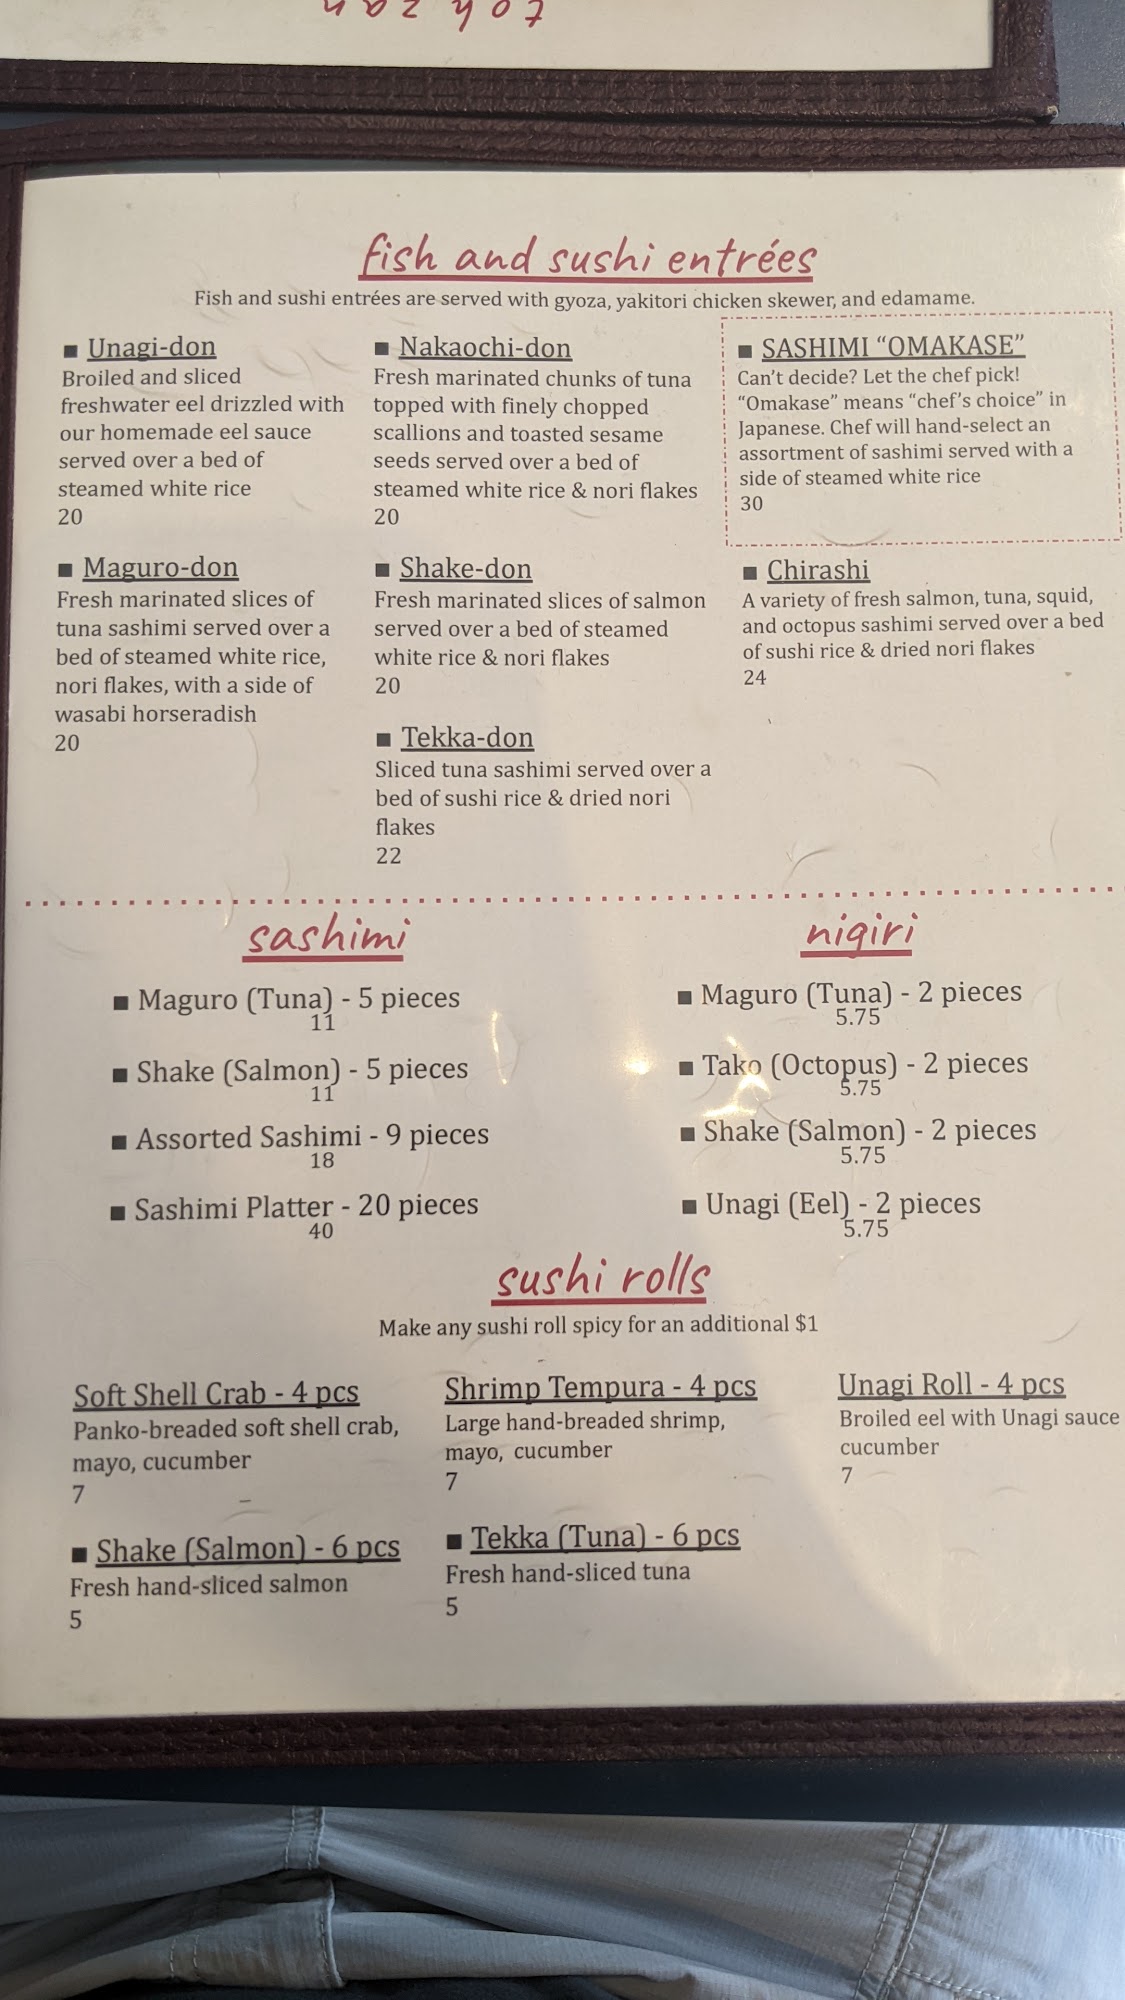 tohzan
fish and sushi entrées
Fish and sushi entrées are served with gyoza, yakitori chicken skewer, and edamame.
■ Unagi-don
Broiled and sliced
freshwater eel drizzled with
our homemade eel sauce
served over a bed of
steamed white rice
20
■ Nakaochi-don
Fresh marinated chunks of tuna
topped with finely chopped
scallions and toasted sesame
seeds served over a bed of
steamed white rice & nori flakes
20
■ SASHIMI “OMAKASE”
Can’t decide? Let the chef pick!
“Omakase” means “chef’s choice” in
Japanese. Chef will hand-select an
assortment of sashimi served with a
side of steamed white rice
30
■ Maguro-don
Fresh marinated slices of
tuna sashimi served over a
bed of steamed white rice,
nori flakes, with a side of
wasabi horseradish
20
■ Shake-don
Fresh marinated slices of salmon
served over a bed of steamed
white rice & nori flakes
20
■ Chirashi
A variety of fresh salmon, tuna, squid,
and octopus sashimi served over a bed
of sushi rice & dried nori flakes
24
■ Tekka-don
Sliced tuna sashimi served over a
bed of sushi rice & dried nori
flakes
22
sashimi
■ Maguro (Tuna) - 5 pieces
11
■ Shake (Salmon) - 5 pieces
11
■ Assorted Sashimi - 9 pieces
18
■ Sashimi Platter - 20 pieces
40
nigiri
■ Maguro (Tuna) - 2 pieces
5.75
■ Tako (Octopus) - 2 pieces
5.75
■ Shake (Salmon) - 2 pieces
5.75
■ Unagi (Eel) - 2 pieces
5.75
sushi rolls
Make any sushi roll spicy for an additional $1
Soft Shell Crab - 4 pcs
Panko-breaded soft shell crab,
mayo, cucumber
7
Shrimp Tempura - 4 pcs
Large hand-breaded shrimp,
mayo, cucumber
7
Unagi Roll - 4 pcs
Broiled eel with Unagi sauce
cucumber
7
■ Shake (Salmon) - 6 pcs
Fresh hand-sliced salmon
5
■ Tekka (Tuna) - 6 pcs
Fresh hand-sliced tuna
5